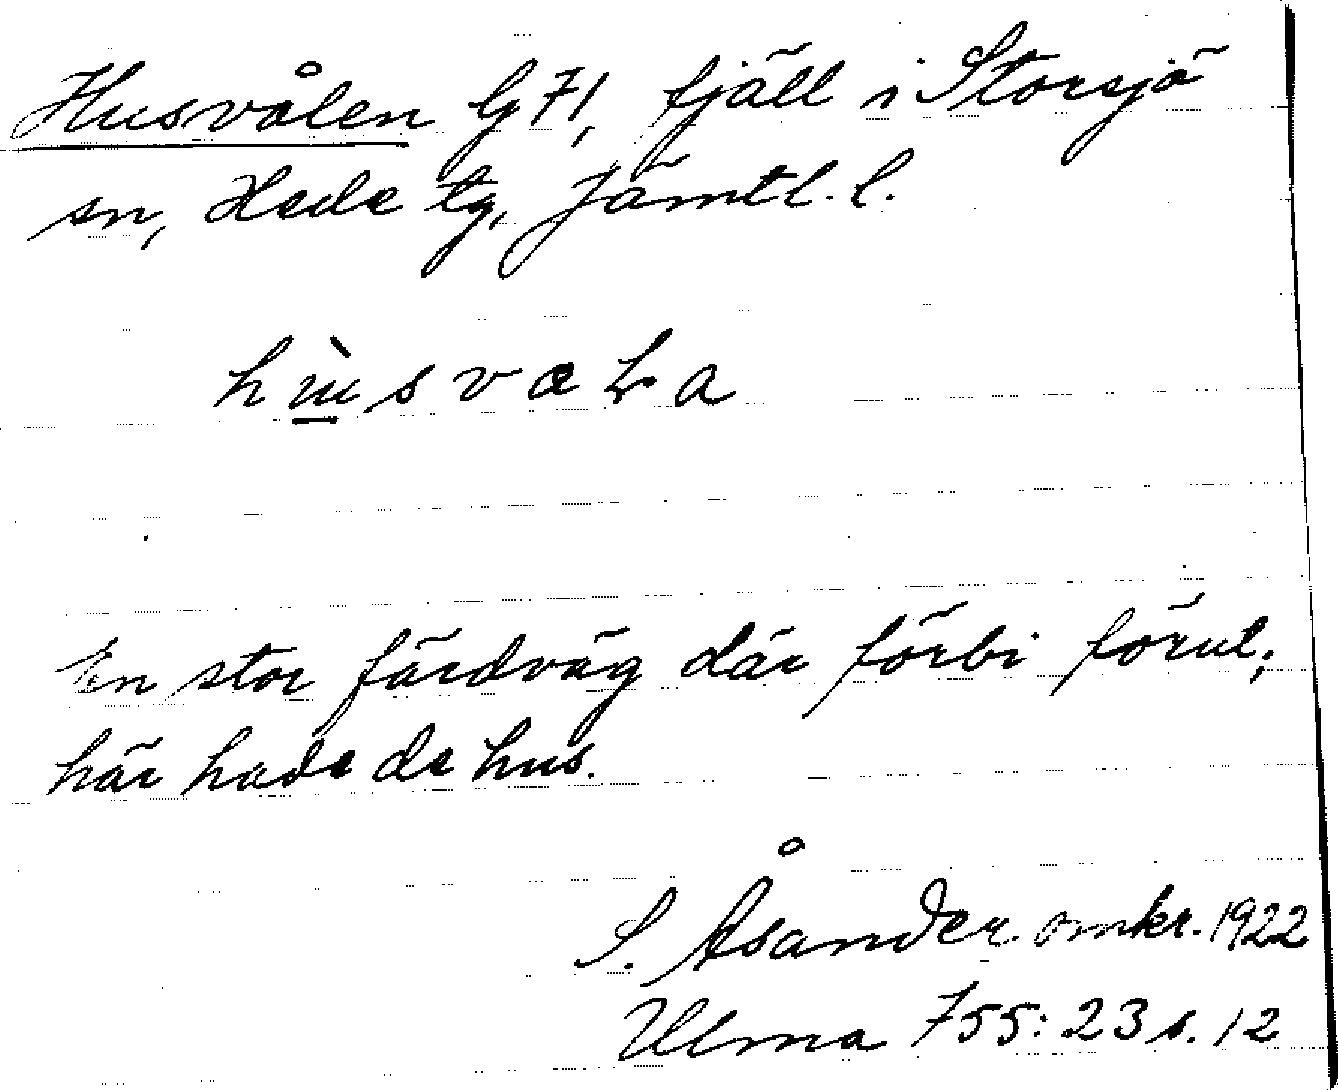 Husvålen G 71, fjäll i Storsjö
sn, Hede tg, Jämtl. l.
En stor färdväg där förbi förut;
här hade de hus.
S. Åsander omkr. 1922
Ulma 755:23 s. 12